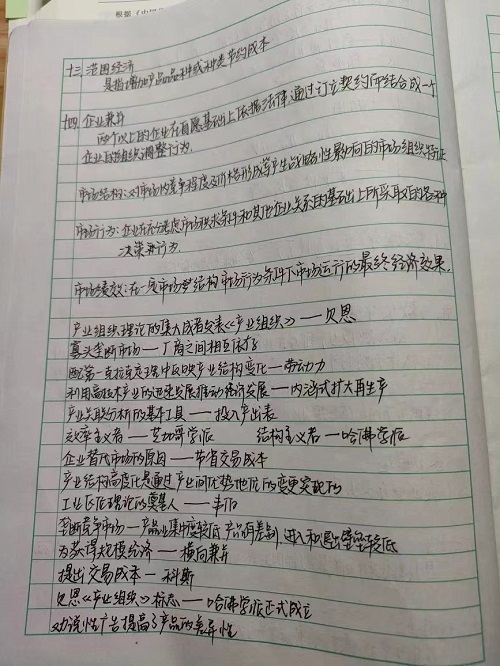 根据《中国
十三 范围经济
是指增加产品品种或种类节约成本
十四 企业兼并
两个以上的企业在自愿基础上依据法律通过订立契约而结合成一个
企业的组织调整行为.
市场结构:对市场内竞争程度及价格形成等产生战略性影响的市场组织特征
市场行为:企业在充分考虑市场供求条件和其他企业关系的基础上所采取的各种
决策行为.
市场绩效:在一定市场结构市场行为条件下市场运行的最终经济效果.
产业组织理论的集大成者发表《产业组织》——贝恩
寡头垄断市场——厂商之间相互依存
配第一克拉克定理中反映产业结构变化——劳动力
利用高技术产业的迅速发展推动经济发展——内涵式扩大再生产
产业关联分析的基本工具——投入产出表
效率主义者——芝加哥学派 结构主义者——哈佛学派
企业替代市场的原因——节省交易成本
产业结构高度化是通过产业间优势地位的变更实现的
工业区位理论的奠基人——韦伯
垄断竞争市场——产业集中度较低 产品有差别,进入和退出壁垒较低
为获得规模经济——横向兼并
提出交易成本—科斯
贝恩《产业组织》标志——哈佛学派正式成立
劝说性广告提高了产品的差异性